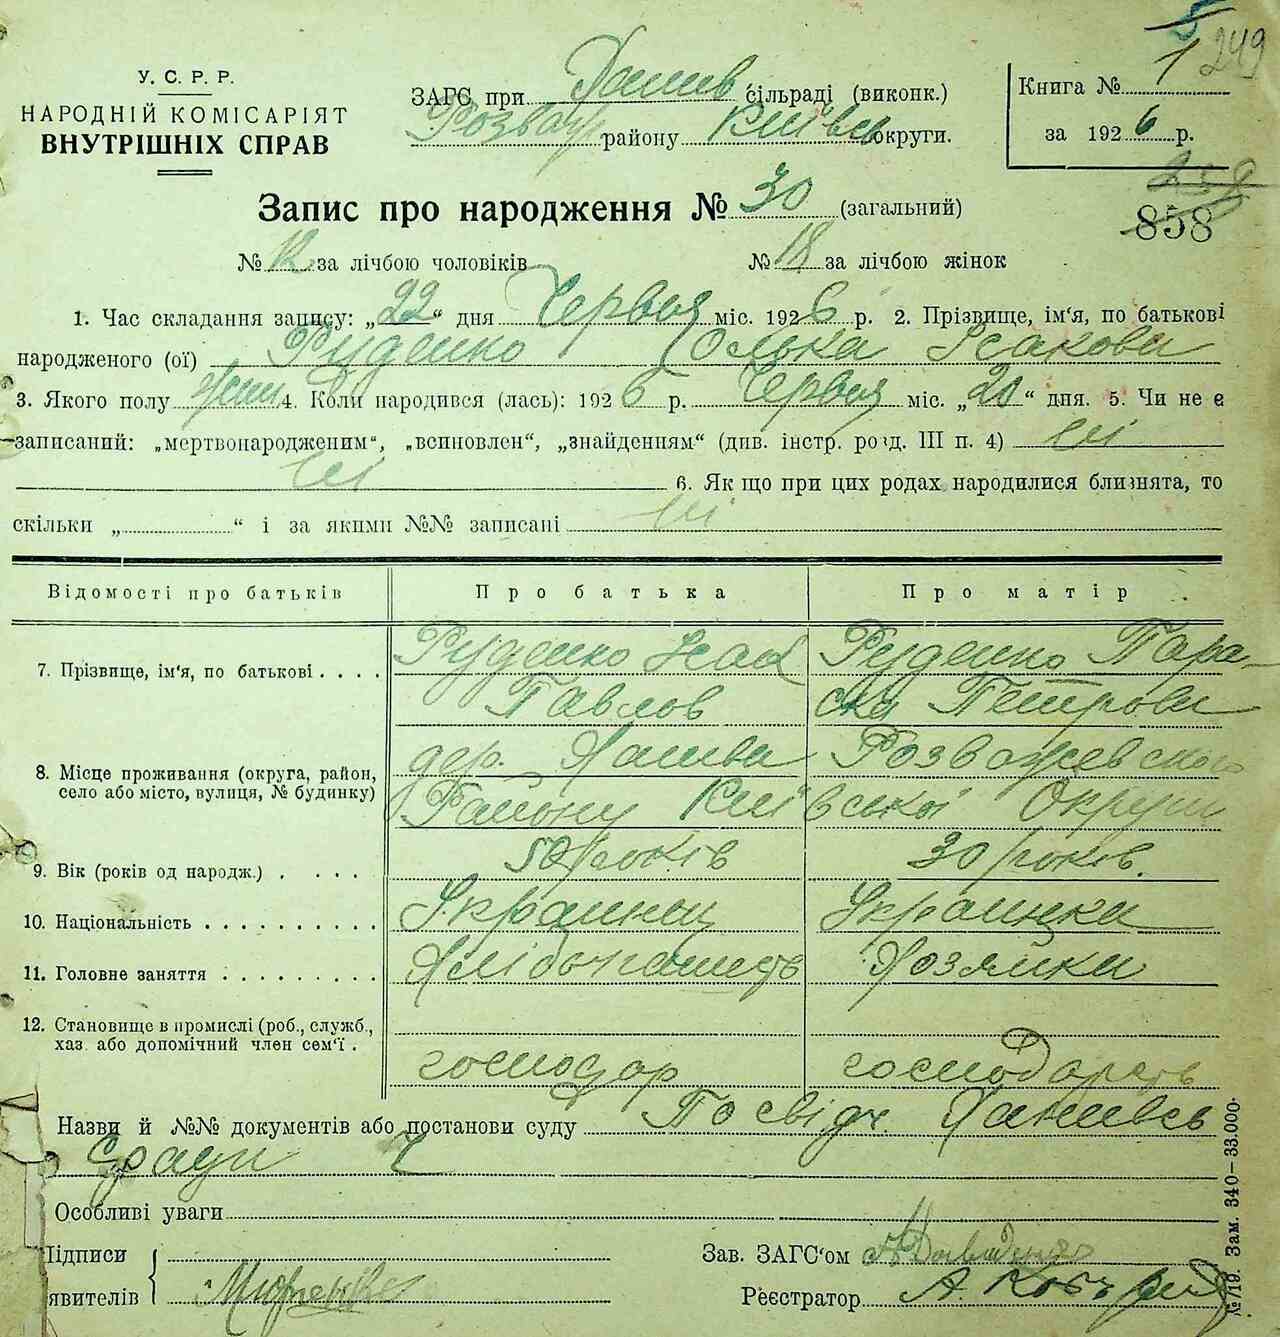 249
У. С. Р. Р.
НАРОДНІЙ КОМІСАРІЯТ
ВНУТРІШНІХ СПРАВ
ЗАГС при сільраді (виконк.)
району округи.
Книга № 1
за 1926 р.
858
Запис про народження № 30 (загальний)
№ 12 за лічбою чоловіків № 18 за лічбою жінок
1. Час складання запису: „22“ дня Червня міс. 1926 р. 2. Прізвище, ім'я, по батькові
народженого (ої) Руденко Олька Ісакова
3. Якого полу жін 4. Коли народився (лась): 1926 р. Червня міс. „20“ дня. 5. Чи не є
записаний: „мертвонародженим“, „всиновлен“, „знайденням“ (див. інстр. розд. III п. 4) ні
ні 6. Як що при цих родах народилися близнята, то
скільки „ “ і за якими №№ записані ні
Відомості про батьків Про батька Про матір
Руденко Ісак Руденко Пара-
7. Прізвище, ім'я, по батькові . . . .
Павлов ска Петрова
дер. Розважевского
8. Місце проживання (округа, район,
село або місто, вулиця, № будинку)
Району Київської Округи
9. Вік (років од народж.) . . . . 50 років 30 років.
10. Національність . . . . . . . . . . Украинец Украинка
11. Головне заняття . . . . . . . . . Хліборашедь Хозяйка
12. Становище в промислі (роб., служб.,
хаз. або допомічний член сем'ї .
господар господарсть
Назви й №№ документів або постанови суду Посвідч.
Єради
Особливі уваги
Підписи
явителів
Зав. ЗАГС'ом
Реєстратор А.
№/19. Зам. 340–33.000.